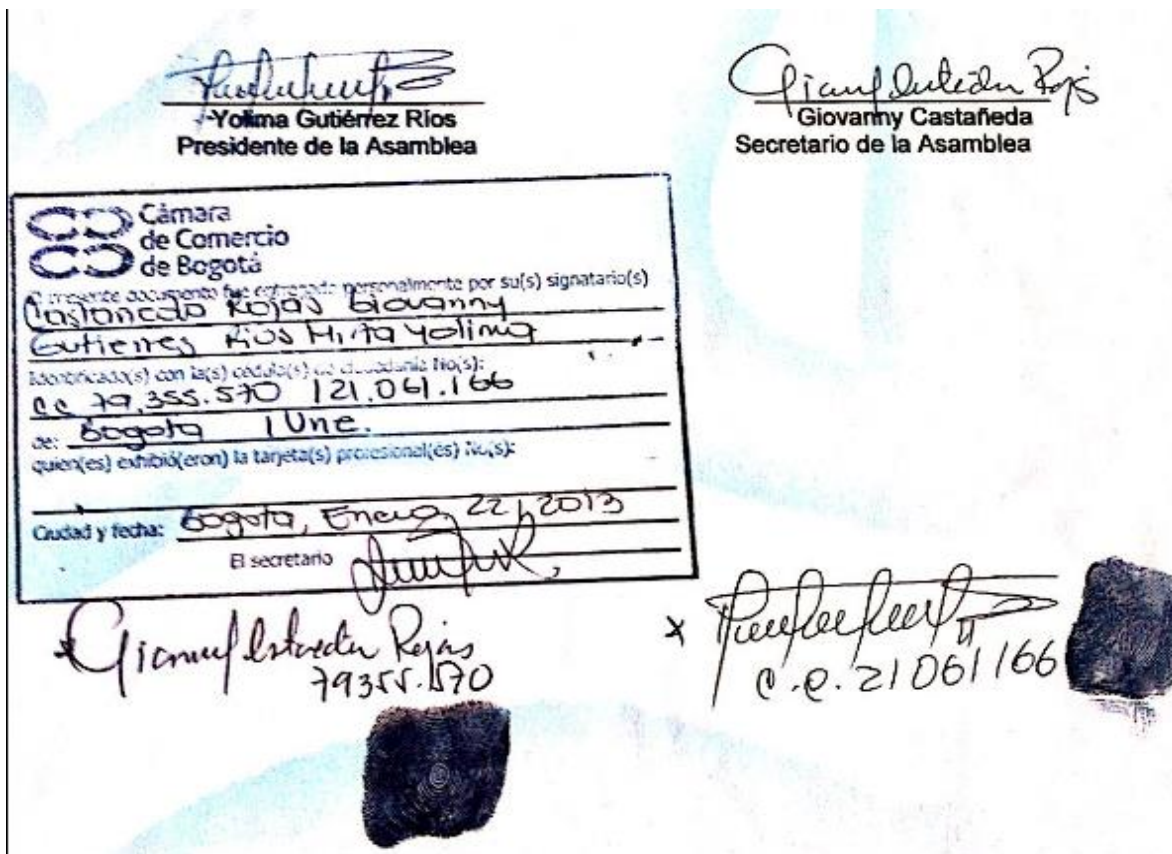 Yolima Gutiérrez Ríos
Presidente de la Asamblea
Giovanny Castañeda
Secretario de la Asamblea
Cámara
de Comercio
de Bogotá
El presente documento fue entregado personalmente por su(s) signatario(s)
Castaneda Rojas Giovanny
Gutierrez Rios Mirta Yolima
Identificado(s) con la(s) cédula(s) de ciudadanía No(s):
cc 79.355.570 / 21.061.166
de: Bogota / Une.
quien(es) exhibió(eron) la tarjeta(s) profesional(es) No(s):
Ciudad y fecha: Bogota, Enero 22/2013
El secretario
x Rojas
79355.570
x
c.c. 21061166